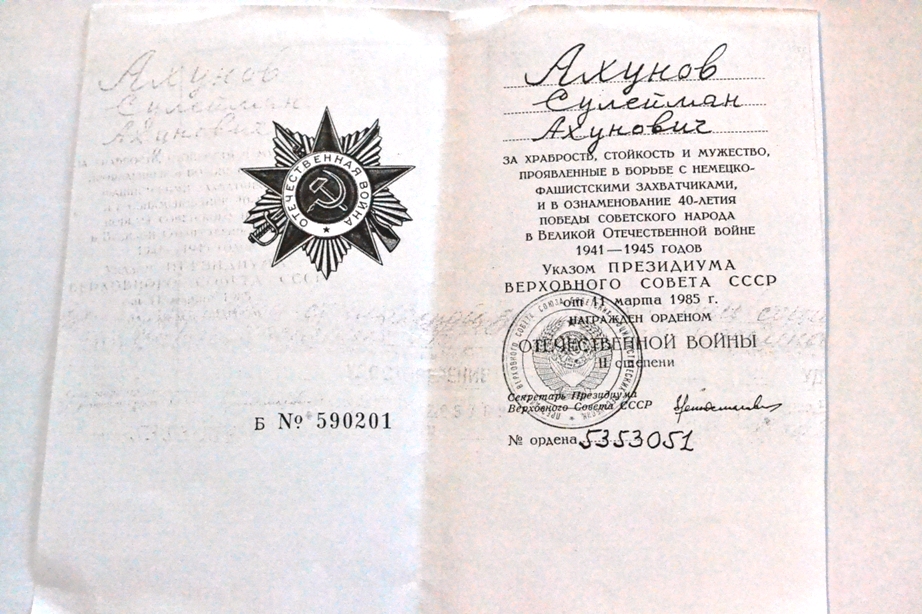 ОТЕЧЕСТВЕННАЯ ВОЙНА
Б № 590201
Ахунов
Сулейман
Ахунович
ЗА ХРАБРОСТЬ, СТОЙКОСТЬ И МУЖЕСТВО,
ПРОЯВЛЕННЫЕ В БОРЬБЕ С НЕМЕЦКО-
ФАШИСТСКИМИ ЗАХВАТЧИКАМИ,
И В ОЗНАМЕНОВАНИЕ 40-ЛЕТИЯ
ПОБЕДЫ СОВЕТСКОГО НАРОДА
В ВЕЛИКОЙ ОТЕЧЕСТВЕННОЙ ВОЙНЕ
1941—1945 ГОДОВ
УКАЗОМ ПРЕЗИДИУМА
ВЕРХОВНОГО СОВЕТА СССР
от 11 марта 1985 г.
НАГРАЖДЕН ОРДЕНОМ
ОТЕЧЕСТВЕННОЙ ВОЙНЫ
II степени
Секретарь Президиума
Верховного Совета СССР
№ ордена 5353051